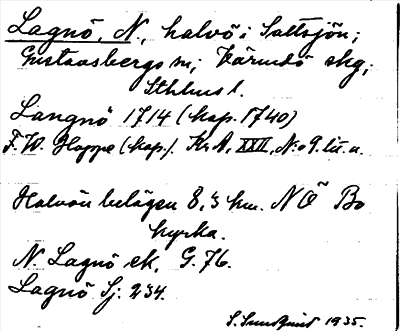 Lagnö, N., halvö i Saltsjön;
Gustavsbergs sn; Värmdö skg;
Sthlms l.
Langnö 1714 (kop. 1740)
F. W. Hoppe (kop.). Kr. A. XXII, N:o 9. lit. a.
Halvön belägen 8,3 km. NÖ Bo
kyrka.
N. Lagnö ek. G. 76.
Lagnö Sj. 234.
S. Sundquist 1935.